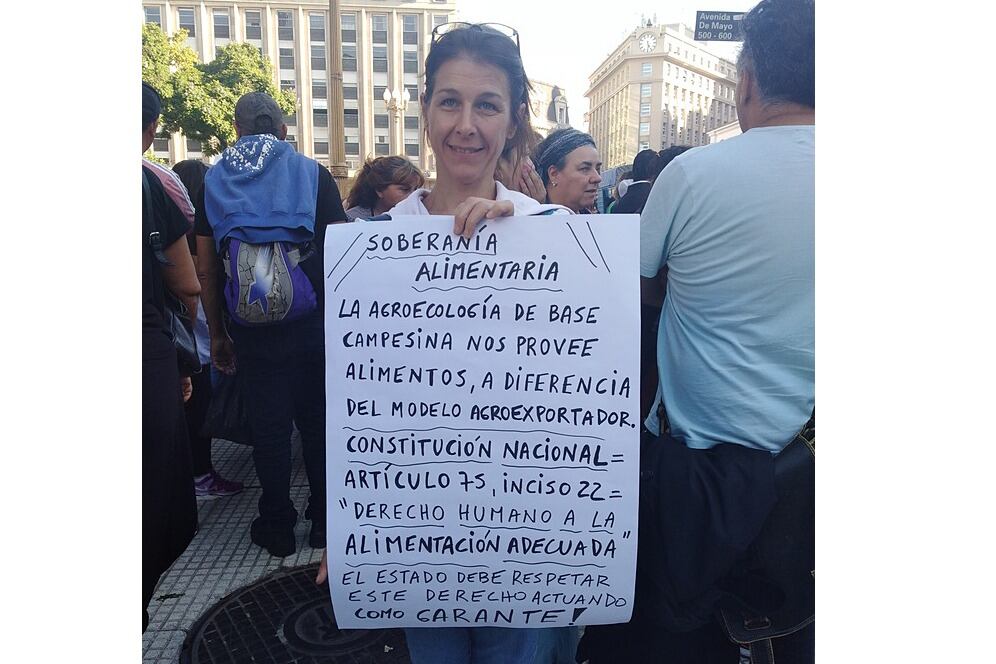 Avenida
De Mayo
500 - 600
SOBERANÍA
ALIMENTARIA
LA AGROECOLOGÍA DE BASE
CAMPESINA NOS PROVEE
ALIMENTOS, A DIFERENCIA
DEL MODELO AGROEXPORTADOR.
CONSTITUCIÓN NACIONAL=
ARTÍCULO 75, INCISO 22=
"DERECHO HUMANO A LA
ALIMENTACIÓN ADECUADA"
EL ESTADO DEBE RESPETAR
ESTE DERECHO ACTUANDO
COMO GARANTE!